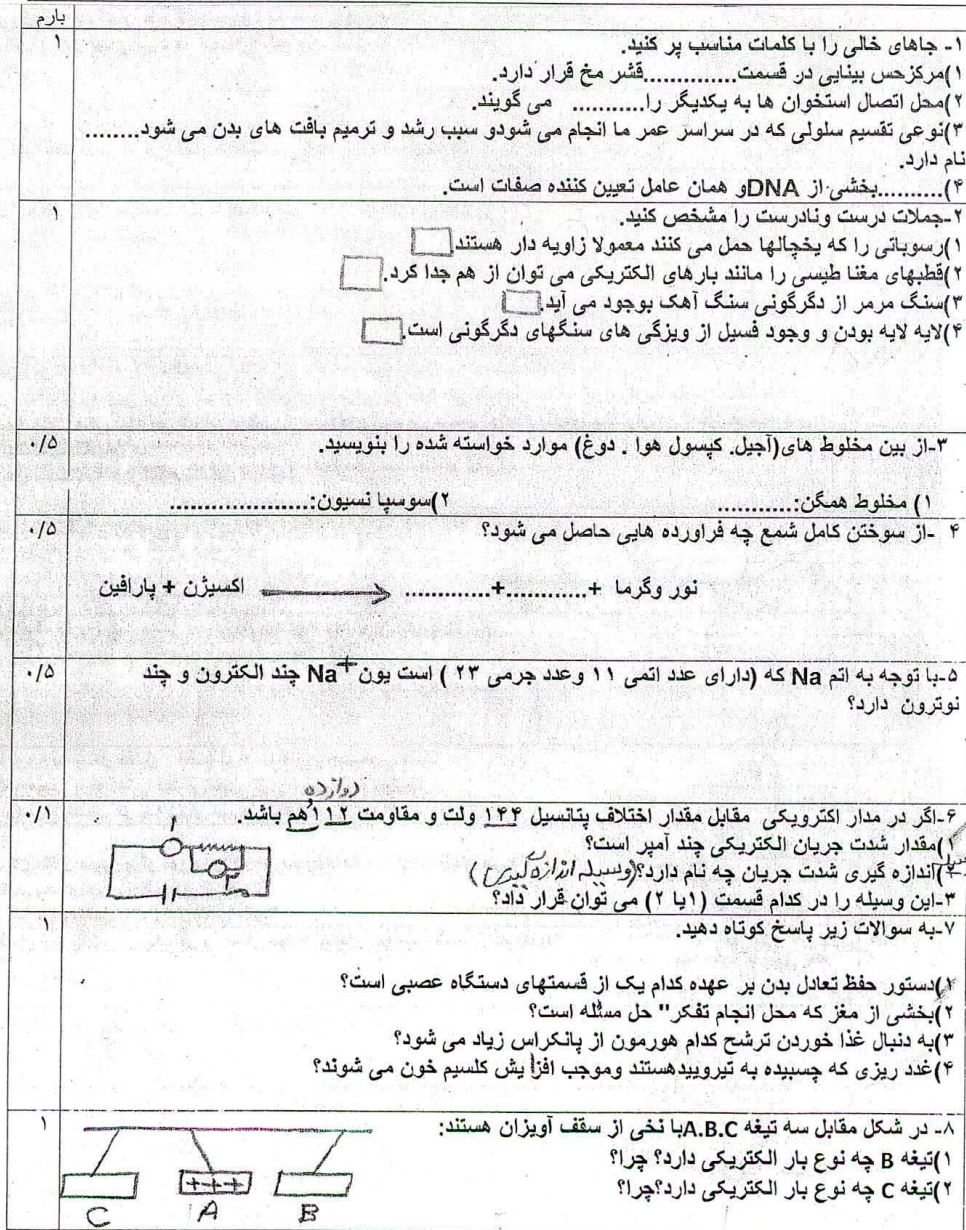 بارم
۱- جاهای خالی را با کلمات مناسب پر کنید. ۱
۱)مرکزحس بینایی در قسمت..............قشر مخ قرار دارد.
۲)محل اتصال استخوان ها به یکدیگر را........... می گویند.
۳)نوعی تقسیم سلولی که در سراسر عمر ما انجام می شودو سبب رشد و ترمیم بافت های بدن می شود........
نام دارد.
۴).........بخشی از DNAو همان عامل تعیین کننده صفات است.
۲-جملات درست ونادرست را مشخص کنید. ۱
۱)رسوباتی را که یخچالها حمل می کنند معمولا زاویه دار هستند
۲)قطبهای مغنا طیسی را مانند بارهای الکتریکی می توان از هم جدا کرد.
۳)سنگ مرمر از دگرگونی سنگ آهک بوجود می آید
۴)لایه لایه بودن و وجود فسیل از ویزگی های سنگهای دگرگونی است.
۳-از بین مخلوط های(آجیل. کپسول هوا . دوغ) موارد خواسته شده را بنویسید. ۰/۵
۱) مخلوط همگن:........... ۲)سوسپا نسیون:....................
۴ -از سوختن کامل شمع چه فراورده هایی حاصل می شود؟ ۰/۵
نور وگرما +............+............. اکسیژن + پارافین
۵-با توجه به اتم Na که (دارای عدد اتمی ۱۱ وعدد جرمی ۲۳ ) است یون Na+ چند الکترون و چند ۰/۵
نوترون دارد؟
دوازده
۶-اگر در مدار اکترویکی مقابل مقدار اختلاف پتانسیل ۱۴۴ ولت و مقاومت ۱۱۲هم باشد. ۰/۱
۱)مقدار شدت جریان الکتریکی چند آمپر است؟
۲)اندازه گیری شدت جریان چه نام دارد؟(وسیله اندازه گیری)
۳-این وسیله را در کدام قسمت (۱یا ۲) می توان قرار داد؟
۱
۲
۷-به سوالات زیر پاسخ کوتاه دهید. ۱
۱)دستور حفظ تعادل بدن بر عهده کدام یک از قسمتهای دستگاه عصبی است؟
۲)بخشی از مغز که محل انجام تفکر" حل مسئله است؟
۳)به دنبال غذا خوردن ترشح کدام هورمون از پانکراس زیاد می شود؟
۴)غدد ریزی که چسبیده به تیروییدهستند وموجب افزا یش کلسیم خون می شوند؟
۸- در شکل مقابل سه تیغه A.B.Cبا نخی از سقف آویزان هستند: ۱
۱)تیغه B چه نوع بار الکتریکی دارد؟ چرا؟
۲)تیغه C چه نوع بار الکتریکی دارد؟چرا؟
+++
C A B